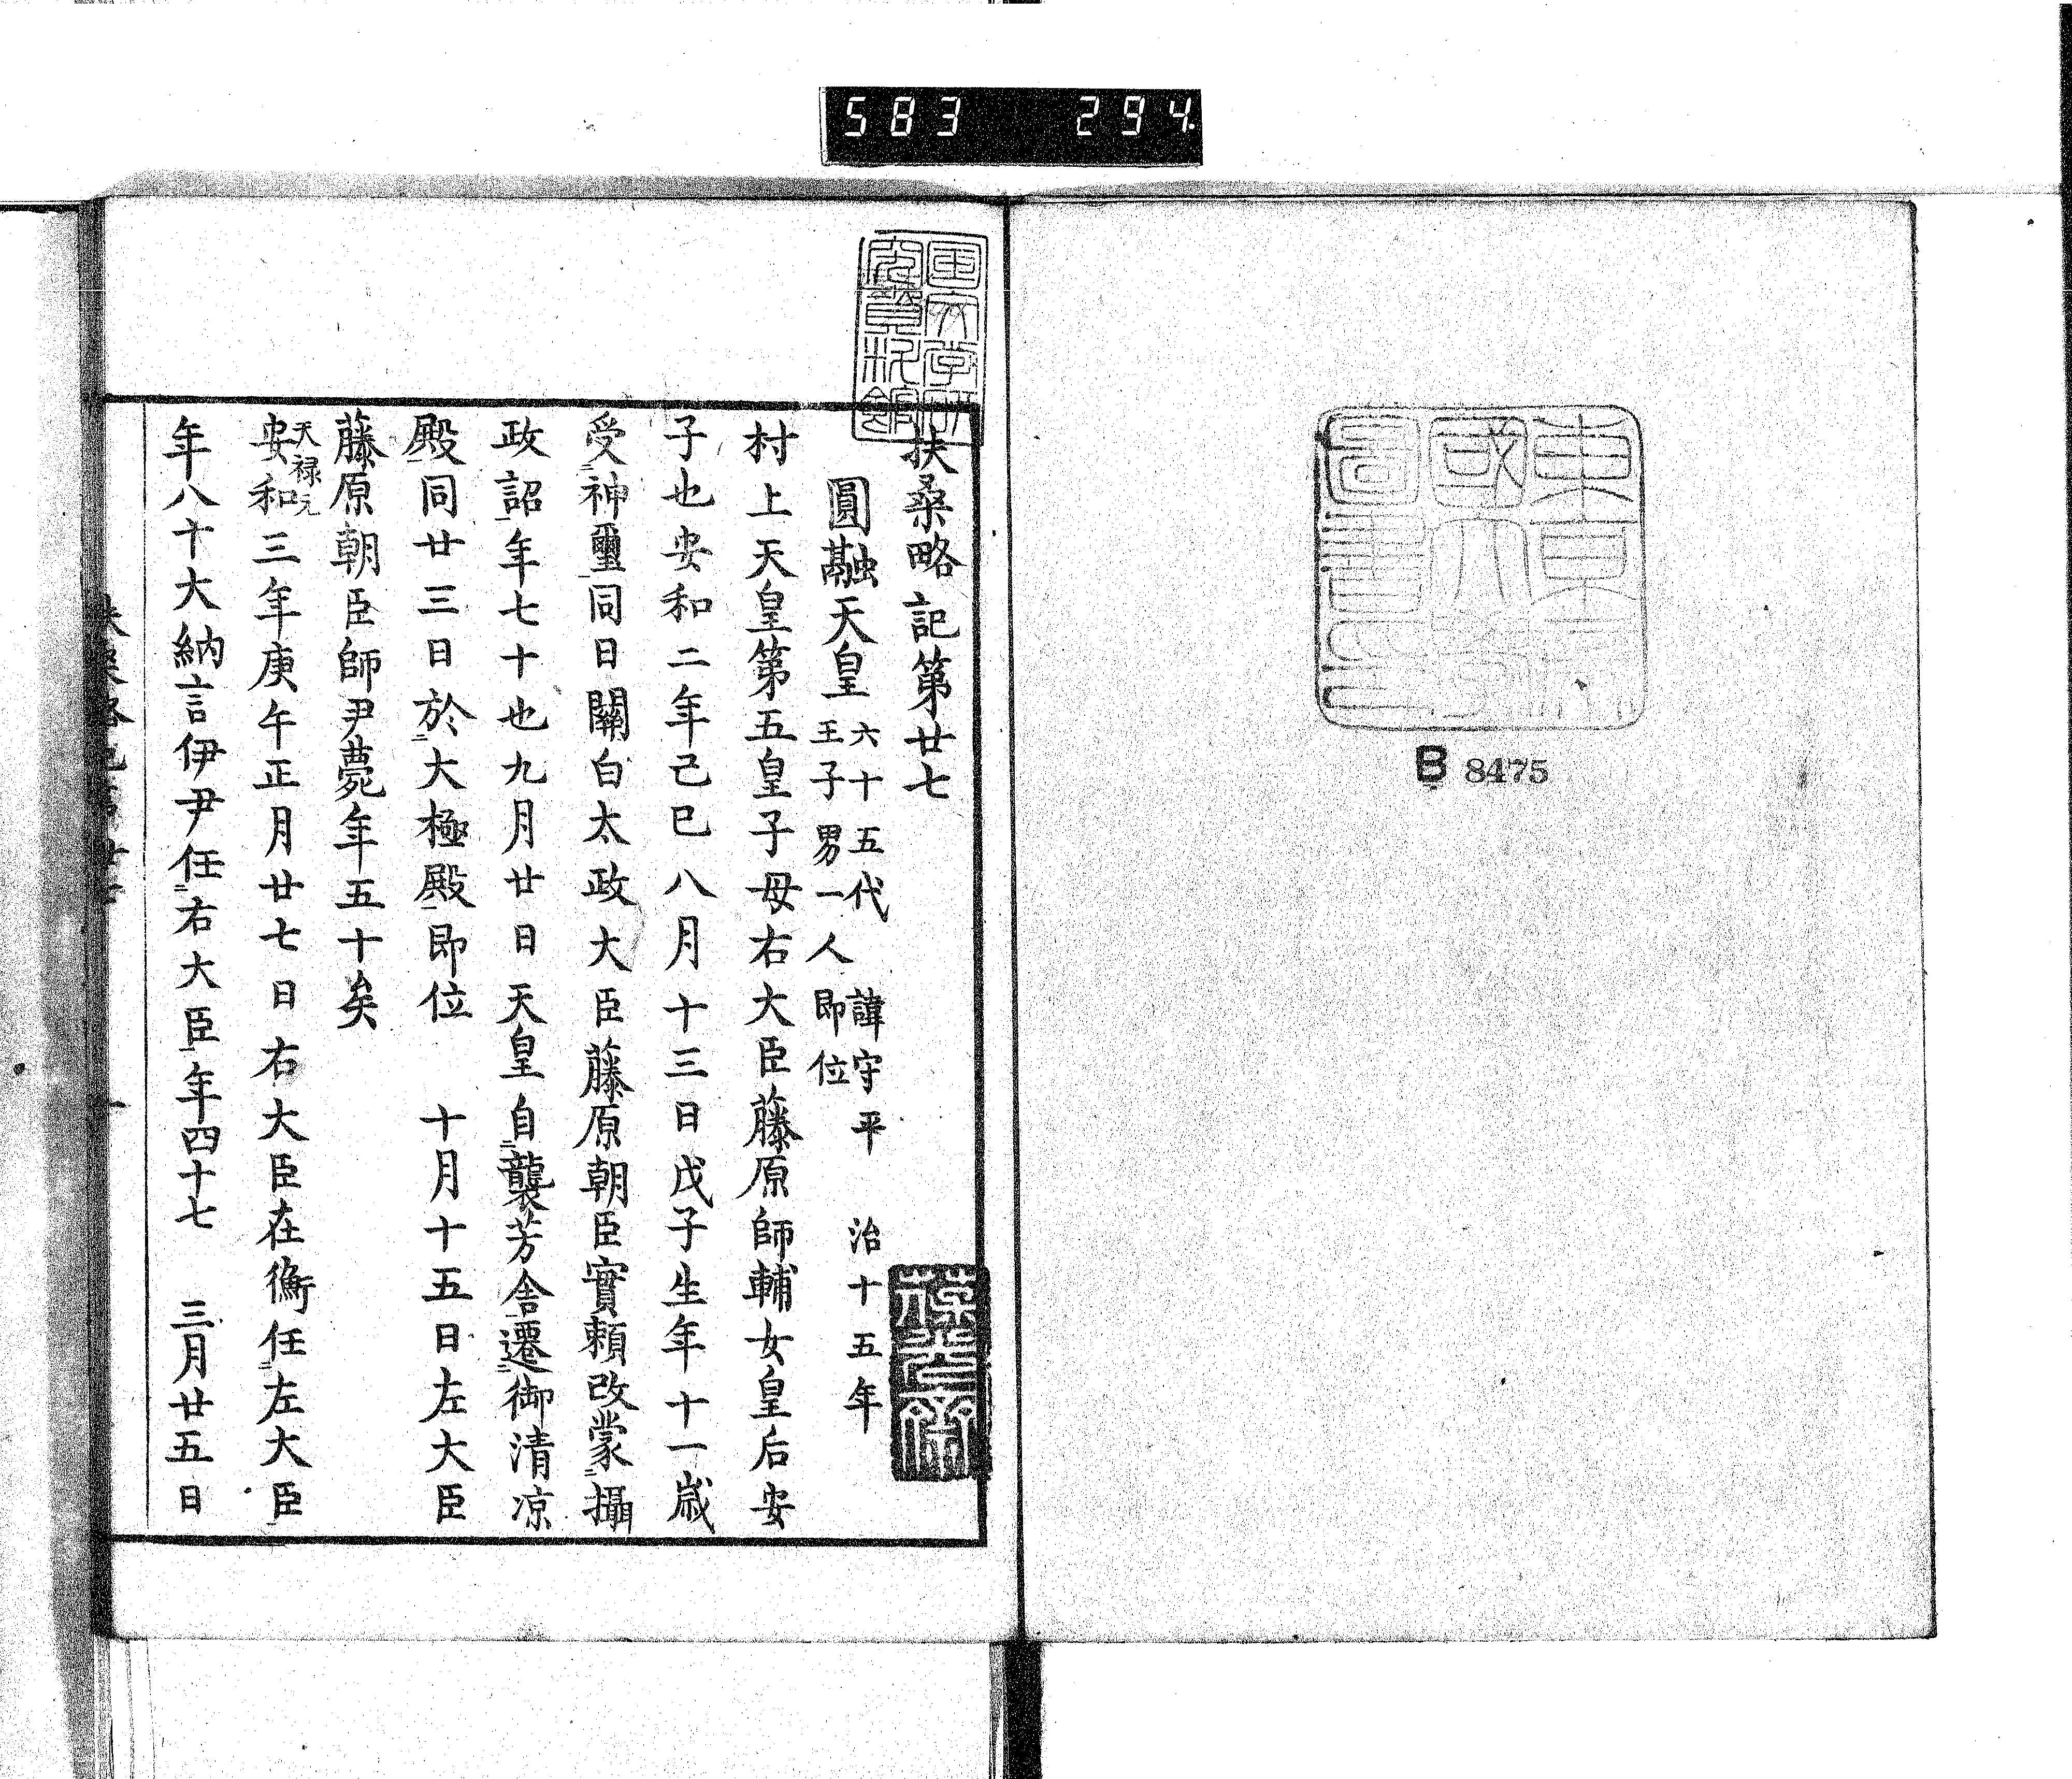 583 294.
B 8475
扶桑略記第廿七
圓融天皇 六十五代 諱守平 治十五年
王子男一人即位
村上天皇第五皇子母右大臣藤原師輔女皇后安
子也安和二年己巳八月十三日戊子生年十一歳
受神璽同日關白太政大臣藤原朝臣實頼改蒙攝
政詔年七十也九月廿日天皇自襲芳舎遷御清凉
殿同廿三日於大極殿即位 十月十五日左大臣
藤原朝臣師尹薨年五十矣
天禄元
安和三年庚午正月廿七日右大臣在衡任左大臣
年八十大納言伊尹任右大臣年四十七 三月廿五日